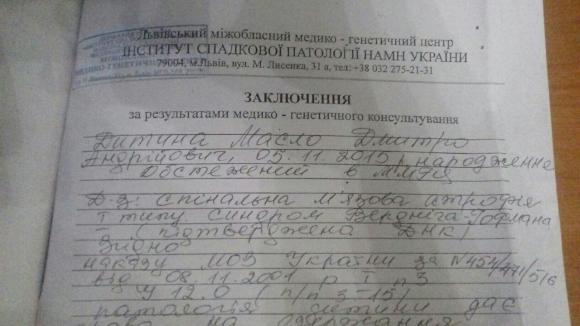 Львівський міжобласний медико - генетичний центр
ІНСТИТУТ СПАДКОВОЇ ПАТОЛОГІЇ НАМН УКРАЇНИ
79004, м.Львів, вул. М. Лисенка, 31 а, тел: +38 032 275-21-31
ЗАКЛЮЧЕННЯ
за результатами медико - генетичного консультування
Дитина Масло Дмитро
Андрійович, 05.11.2015, народження
Обстежений в ММГЦ
Д-з: Спінальна м'язова атрофія
І типу синдром Вердніга-Гофмана
(підтверджена ДНК)
Згідно
наказу МОЗ України за N 454/471/516
від 08.11.2001 р І п 3
ч 12.0 (п/п 3-15)
патологія дитини дає
на одержання